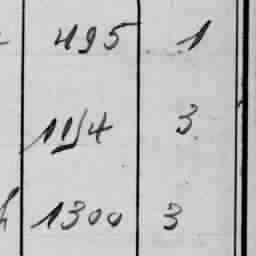 495 1
11/4 3
1300 3